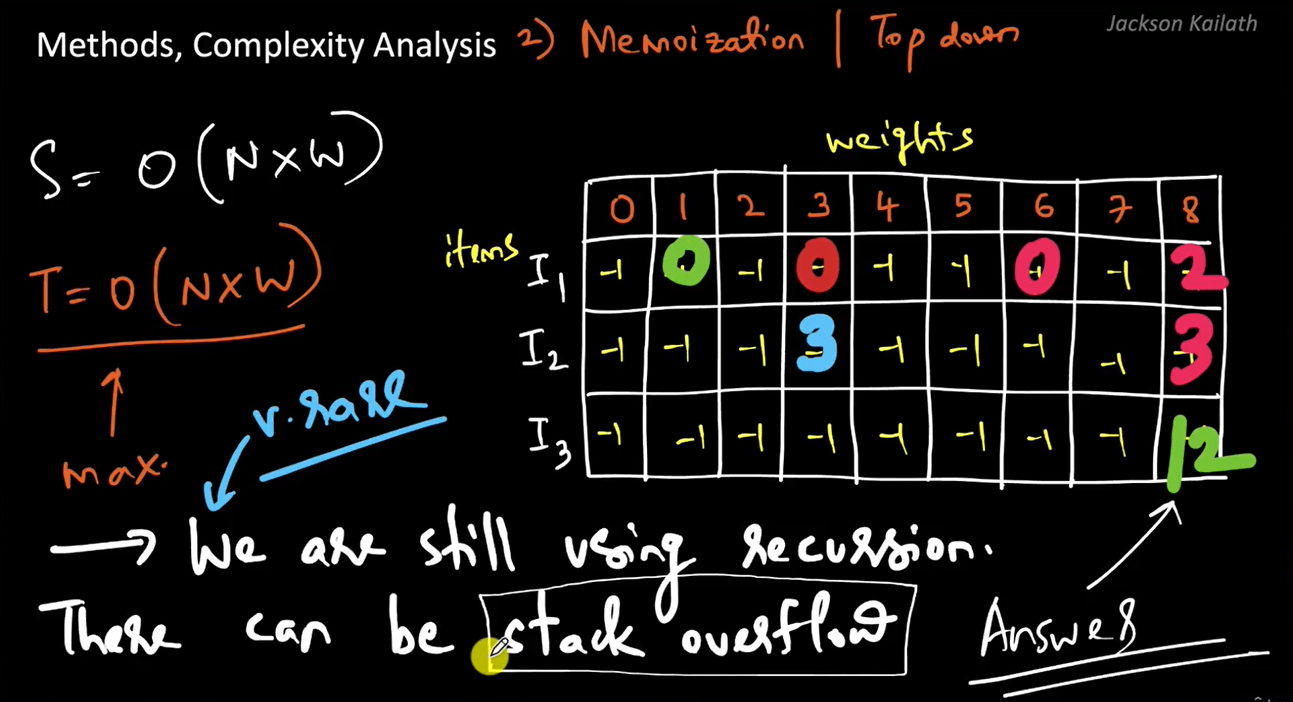 Methods, Complexity Analysis 2) Memoization | Top down
Jackson Kailath
S = O(N×W)
T = O(N×W)
max.
v.rare
weights
items
0 1 2 3 4 5 6 7 8
I1 -1 0 -1 0 -1 -1 0 -1 2
I2 -1 -1 -1 3 -1 -1 -1 -1 3
I3 -1 -1 -1 -1 -1 -1 -1 -1 12
→ We are still using recursion.
There can be stack overflow
Answer